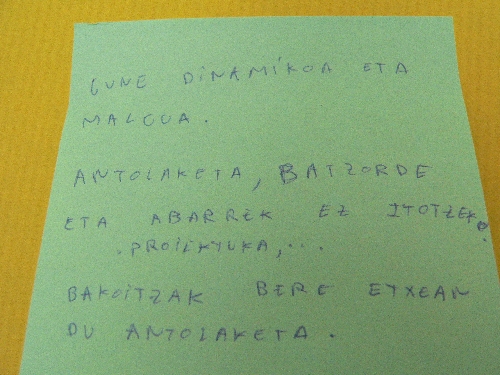 GUNE DINAMIKOA ETA
MALGUA.
ANTOLAKETA, BATZORDE
ETA ABARREK EZ ITOTZEKO.
BAKOITZAK BERE ETXEAN
DU ANTOLAKETA.